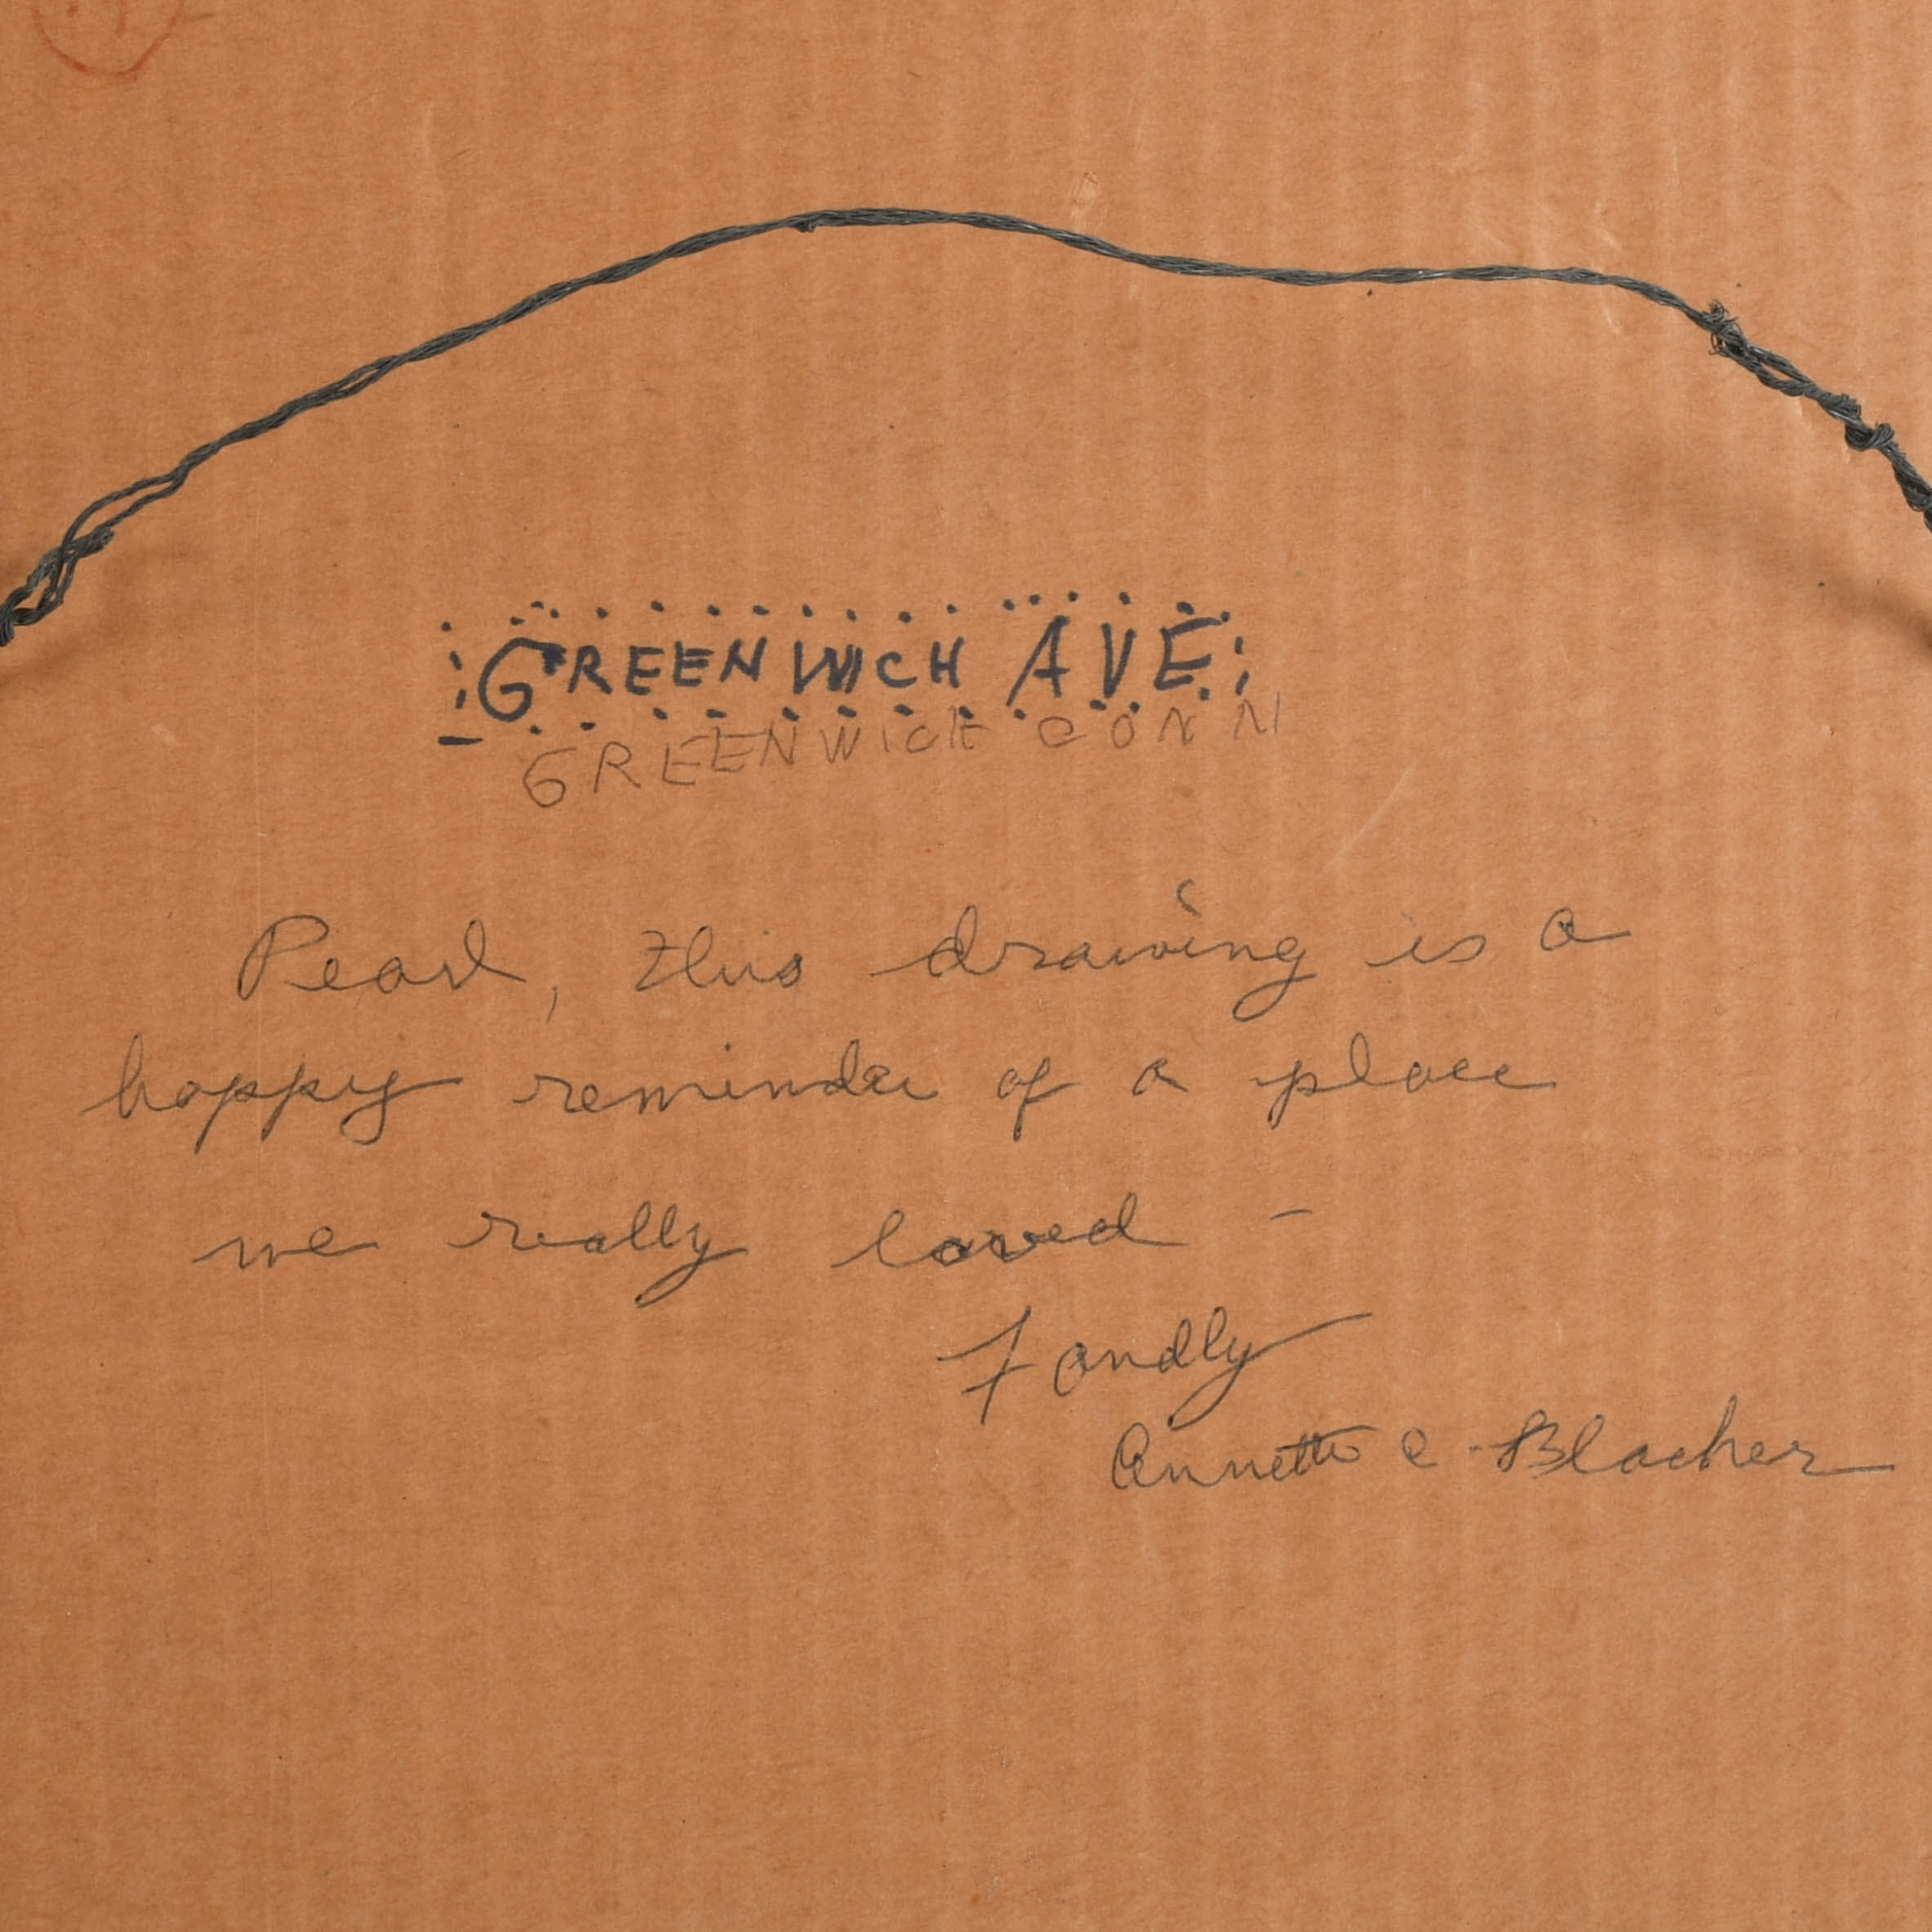 GREENWICH AVE
GREENWICH CONN
Pearl, this drawing is a
happy reminder of a place
we really loved –
Fondly
Annette C Blacher